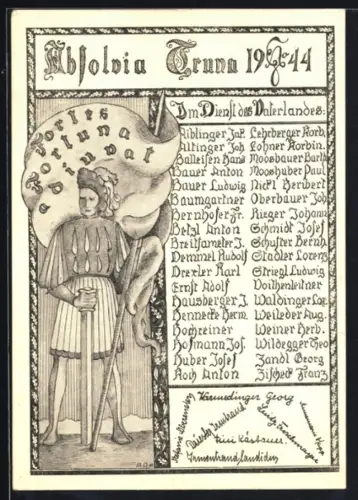 Absolvia Truna 1944
Fortes
Fortuna
adiuvat
Im Dienst des Vaterlandes:
Aiblinger Jak.
Altinger Joh
Balleisen Hans
Bauer Anton
Bauer Ludwig
Baumgartner
Bernhofer Fr.
Betzl Anton
Breitsameter J.
Demmel Rudolf
Drexler Karl
Ernst Adolf
Hausberger J.
Hennecke Herm.
Hochreiner
Hofmann Jos.
Huber Josef
Koch Anton
Lehrberger Korb.
Lohner Korbin.
Moosbauer Barth
Mooshuber Paul
Nickl Heribert
Oberbauer Joh
Rieger Johann
Schmidt Josef
Schuster Bernh
Stadler Lorenz
Striegl Ludwig
Voithenleitner
Waldinger Lor.
Weileder Aug.
Weiner Herb.
Wildegger Theo
Zandl Georg
Zischeck Franz
Georg
Irmenhard